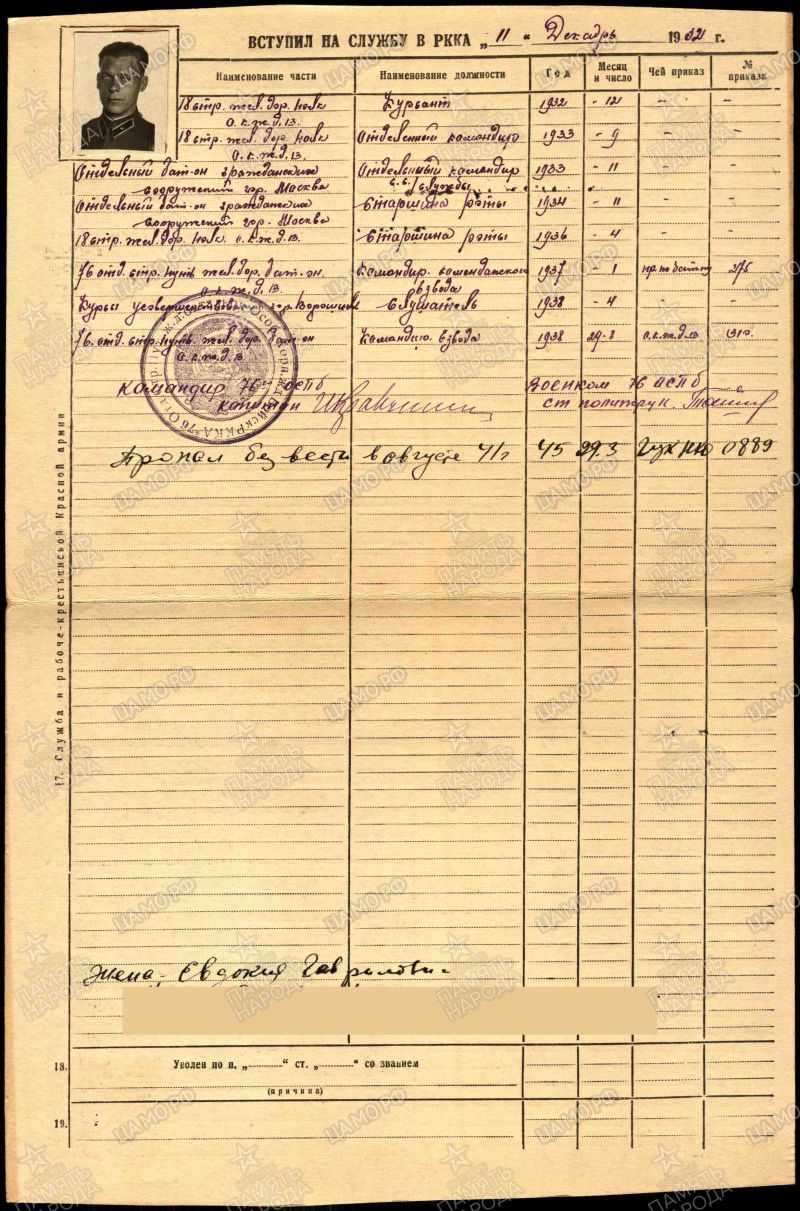 ВСТУПИЛ НА СЛУЖБУ В РККА „ 11 “ Декабрь 1932 г.
Наименование части Наименование должности Год Месяц и число Чей приказ № приказа
18 стр. жел. дор. полк Курсант 1932 - 12 - -
О.К.Ж.Д.В.
18 стр. жел. дор. полк Отделенный командир 1933 - 9 - -
О.К.Ж.Д.В.
Отдельный бат-он гражданских Отделенный командир 1933 - 11 - -
сооружений гор. Москва с.с. службы
Отдельный бат-он гражданских Старшина роты 1934 - 11 - -
сооружений гор. Москва
18 стр. жел. дор. полк О.К.Ж.Д.В. Старшина роты 1936 - 4 - -
76 отд. стр. путв. жел. дор. бат-он. Командир комендантского 1937 - 1 пр. по бат-ну 275
О.К.Ж.Д.В. взвода
Курсы усовершенствован гор. Ворошилов Слушатель 1938 - 4 - -
76 отд. стр. путв. жел. дор. бат-он Командир взвода 1938 29-8 О.К.Ж.Д.В
О.К.Ж.Д.В
Командир 76 ОСПБ Военком 76 ОСПБ
капитан ст политрук
Пропал без вести в августе 41 г 45 29.3 ГУК НКО 0889
17. Служба в рабоче-крестьянской Красной армии
Жена - Евдокия Гавриловна
18. Уволен по п. „ “ ст. „ “ со званием
(причина)
19.
ЦАМО.РФ
ПАМЯТЬ НАРОДА